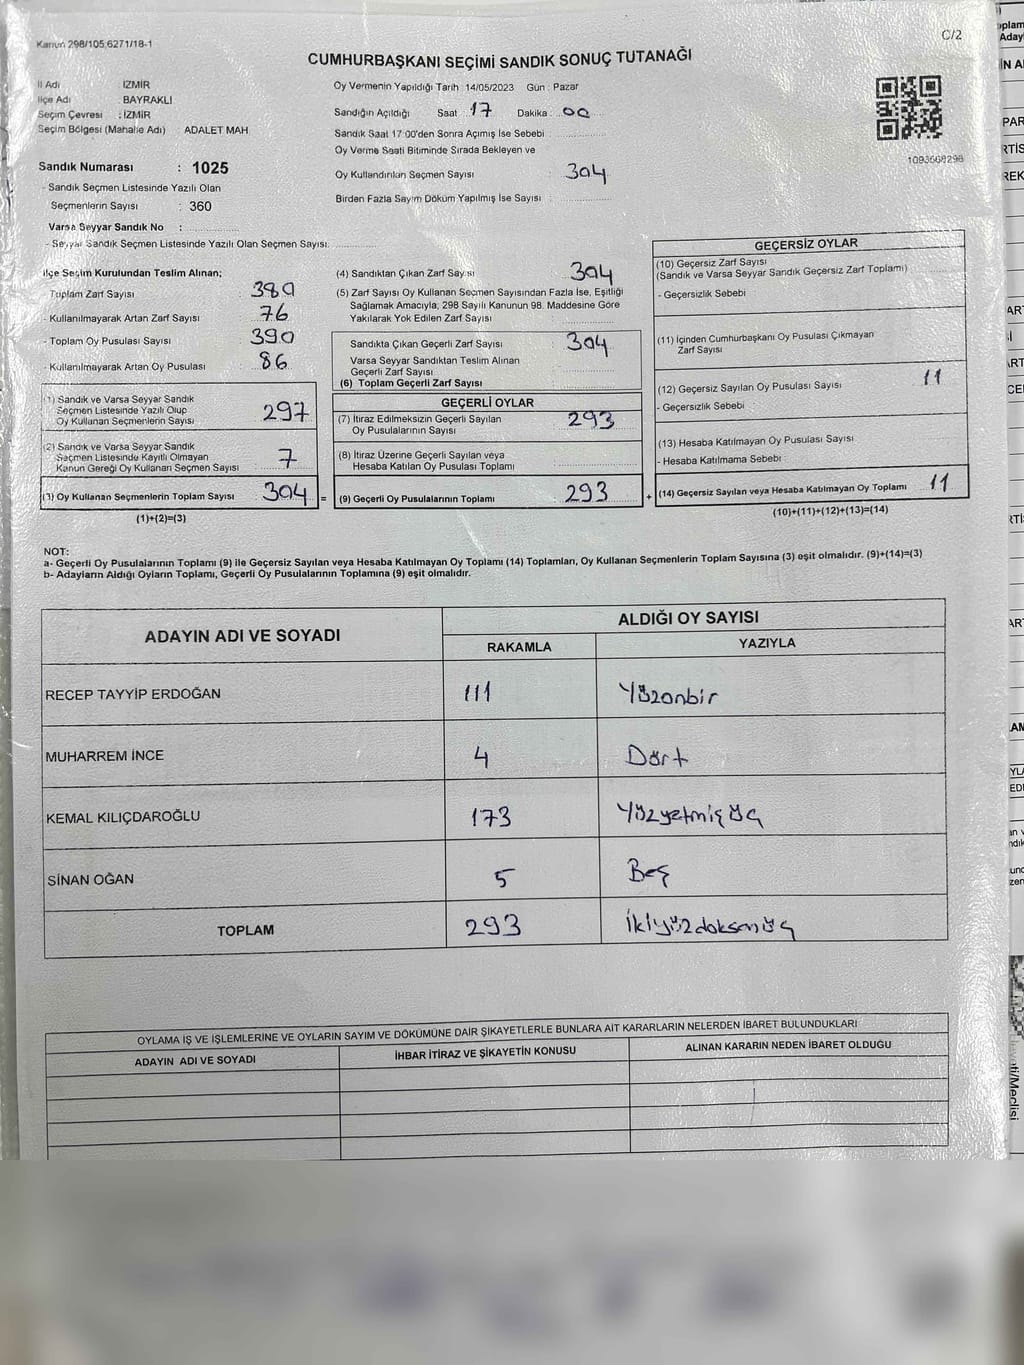 Kanun 298/105,6271/18-1
C/2
CUMHURBAŞKANI SEÇİMİ SANDIK SONUÇ TUTANAĞI
İl Adı İZMİR
İlçe Adı : BAYRAKLI
Seçim Çevresi : İZMİR
Seçim Bölgesi (Mahalle Adı) ADALET MAH.
Oy Vermenin Yapıldığı Tarih 14/05/2023 Gün : Pazar
Sandığın Açıldığı Saat : 17 Dakika : 00
Sandık Saat 17:00'den Sonra Açımış İse Sebebi :
Oy Verme Saati Bitiminde Sırada Bekleyen ve
Oy Kullandırılan Seçmen Sayısı : 304
Birden Fazla Sayım Döküm Yapılmış İse Sayısı :
1093668298
Sandık Numarası : 1025
- Sandık Seçmen Listesinde Yazılı Olan
Seçmenlerin Sayısı : 360
Varsa Seyyar Sandık No :
- Seyyar Sandık Seçmen Listesinde Yazılı Olan Seçmen Sayısı:
İlçe Seçim Kurulundan Teslim Alınan;
Toplam Zarf Sayısı : 380
- Kullanılmayarak Artan Zarf Sayısı : 76
- Toplam Oy Pusulası Sayısı : 390
- Kullanılmayarak Artan Oy Pusulası : 86
(1) Sandık ve Varsa Seyyar Sandık
Seçmen Listesinde Yazılı Olup
Oy Kullanan Seçmenlerin Sayısı : 297
(2) Sandık ve Varsa Seyyar Sandık
Seçmen Listesinde Kayıtlı Olmayan
Kanun Gereği Oy Kullanan Seçmen Sayısı : 7
(3) Oy Kullanan Seçmenlerin Toplam Sayısı 304 =
(1)+(2)=(3)
(4) Sandıktan Çıkan Zarf Sayısı 304
(5) Zarf Sayısı Oy Kullanan Seçmen Sayısından Fazla İse, Eşitliği
Sağlamak Amacıyla, 298 Sayılı Kanunun 98. Maddesine Göre
Yakılarak Yok Edilen Zarf Sayısı
Sandıkta Çıkan Geçerli Zarf Sayısı : 304
Varsa Seyyar Sandıktan Teslim Alınan
Geçerli Zarf Sayısı
(6) Toplam Geçerli Zarf Sayısı
GEÇERLİ OYLAR
(7) İtiraz Edilmeksizin Geçerli Sayılan
Oy Pusulalarının Sayısı : 293
(8) İtiraz Üzerine Geçerli Sayılan veya
Hesaba Katılan Oy Pusulası Toplamı :
(9) Geçerli Oy Pusulalarının Toplamı 293 +
GEÇERSİZ OYLAR
(10) Geçersiz Zarf Sayısı
(Sandık ve Varsa Seyyar Sandık Geçersiz Zarf Toplamı)
- Geçersizlik Sebebi
(11) İçinden Cumhurbaşkanı Oy Pusulası Çıkmayan
Zarf Sayısı
(12) Geçersiz Sayılan Oy Pusulası Sayısı 11
- Geçersizlik Sebebi :
(13) Hesaba Katılmayan Oy Pusulası Sayısı
- Hesaba Katılmama Sebebi :
(14) Geçersiz Sayılan veya Hesaba Katılmayan Oy Toplamı 11
(10)+(11)+(12)+(13)=(14)
NOT:
a- Geçerli Oy Pusulalarının Toplamı (9) ile Geçersiz Sayılan veya Hesaba Katılmayan Oy Toplamı (14) Toplamları, Oy Kullanan Seçmenlerin Toplam Sayısına (3) eşit olmalıdır. (9)+(14)=(3)
b- Adayların Aldığı Oyların Toplamı, Geçerli Oy Pusulalarının Toplamına (9) eşit olmalıdır.
ADAYIN ADI VE SOYADI
ALDIĞI OY SAYISI
RAKAMLA YAZIYLA
RECEP TAYYİP ERDOĞAN 111 Yüzonbir
MUHARREM İNCE 4 Dört
KEMAL KILIÇDAROĞLU 173 Yüzyetmişüç
SİNAN OĞAN 5 Beş
TOPLAM 293 İkiyüzdoksanüç
OYLAMA İŞ VE İŞLEMLERİNE VE OYLARIN SAYIM VE DÖKÜMÜNE DAİR ŞİKAYETLERLE BUNLARA AİT KARARLARIN NELERDEN İBARET BULUNDUKLARI
ADAYIN ADI VE SOYADI İHBAR İTİRAZ VE ŞİKAYETİN KONUSU ALINAN KARARIN NEDEN İBARET OLDUĞU